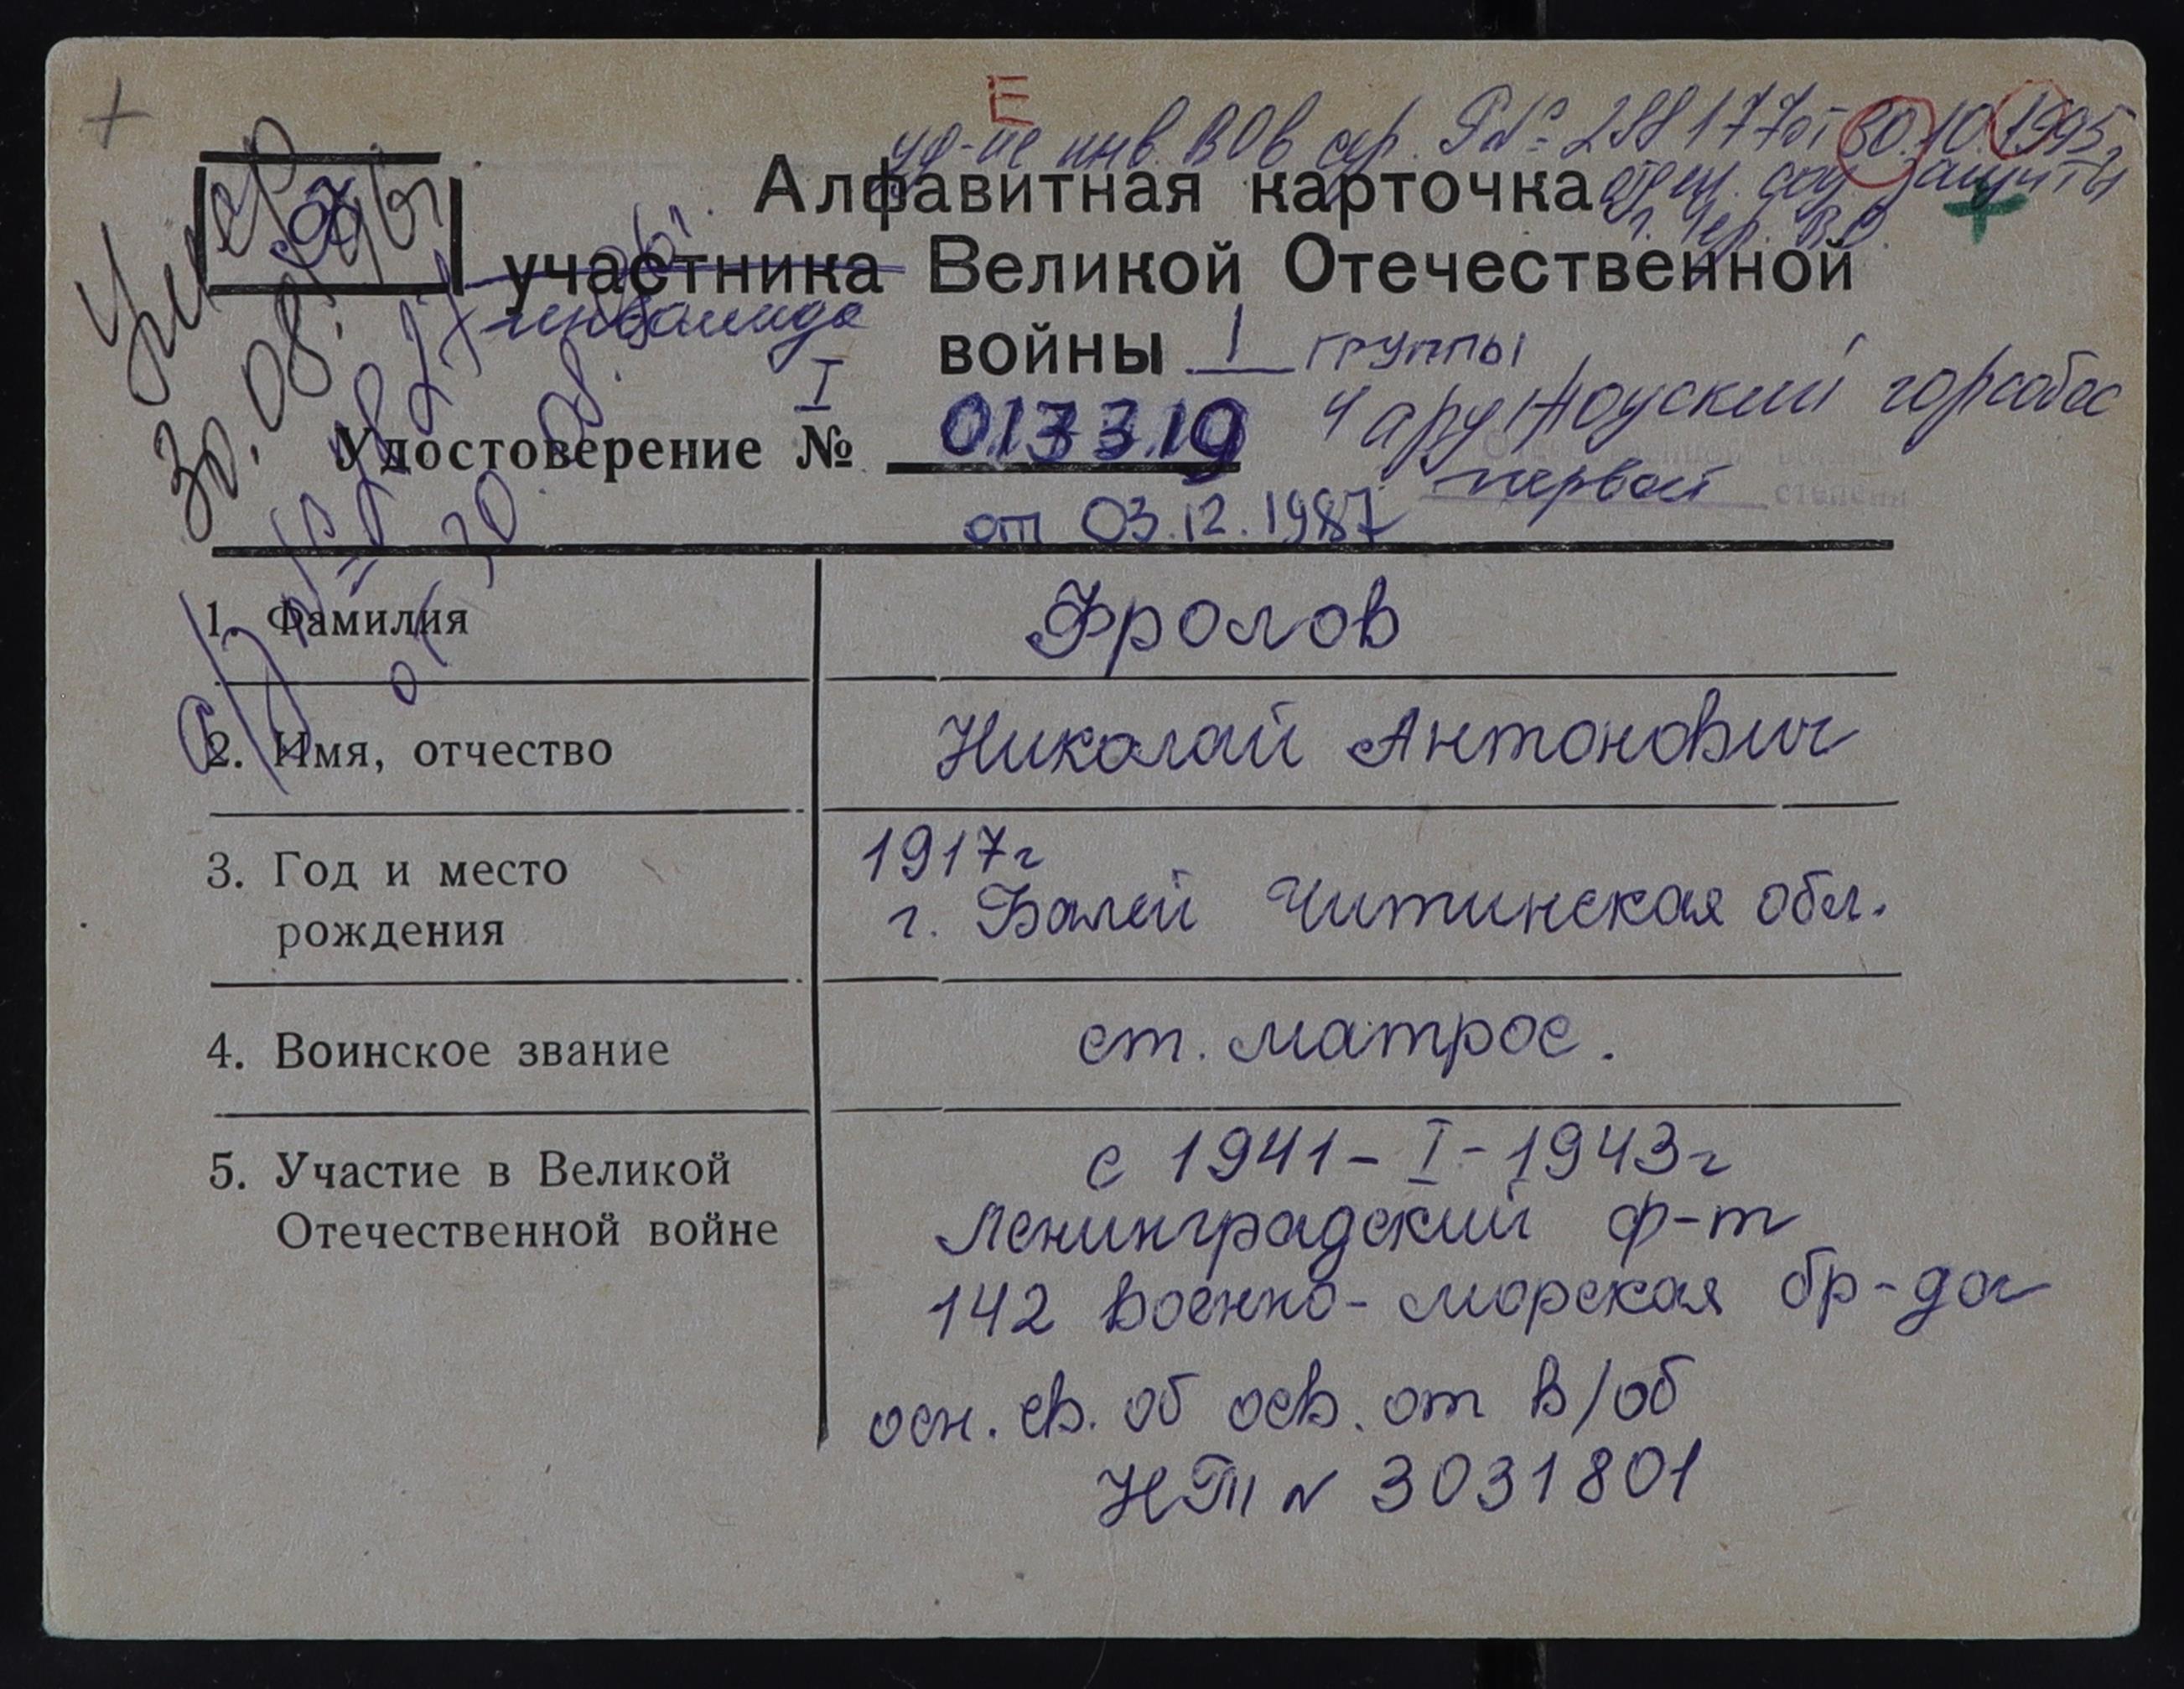 Е
уд-ие инв. ВОв сер. Р № 288177 от 30.10.1995
Алфавитная карточка
участника Великой Отечественной
инвалида
войны I группы
горсобес
I
Удостоверение № 013319
первой степени
от 03.12.1987
Умер
30.08.
1. Фамилия
Фролов
2. Имя, отчество
Николай Антонович
3. Год и место
рождения
1917г
г. Балей Читинская обл.
4. Воинское звание
ст. матрос.
5. Участие в Великой
Отечественной войне
с 1941 - I - 1943г
Ленинградский ф-т
142 военно-морская бр-да
осн. св. об осв. от в/об
НТП № 3031801